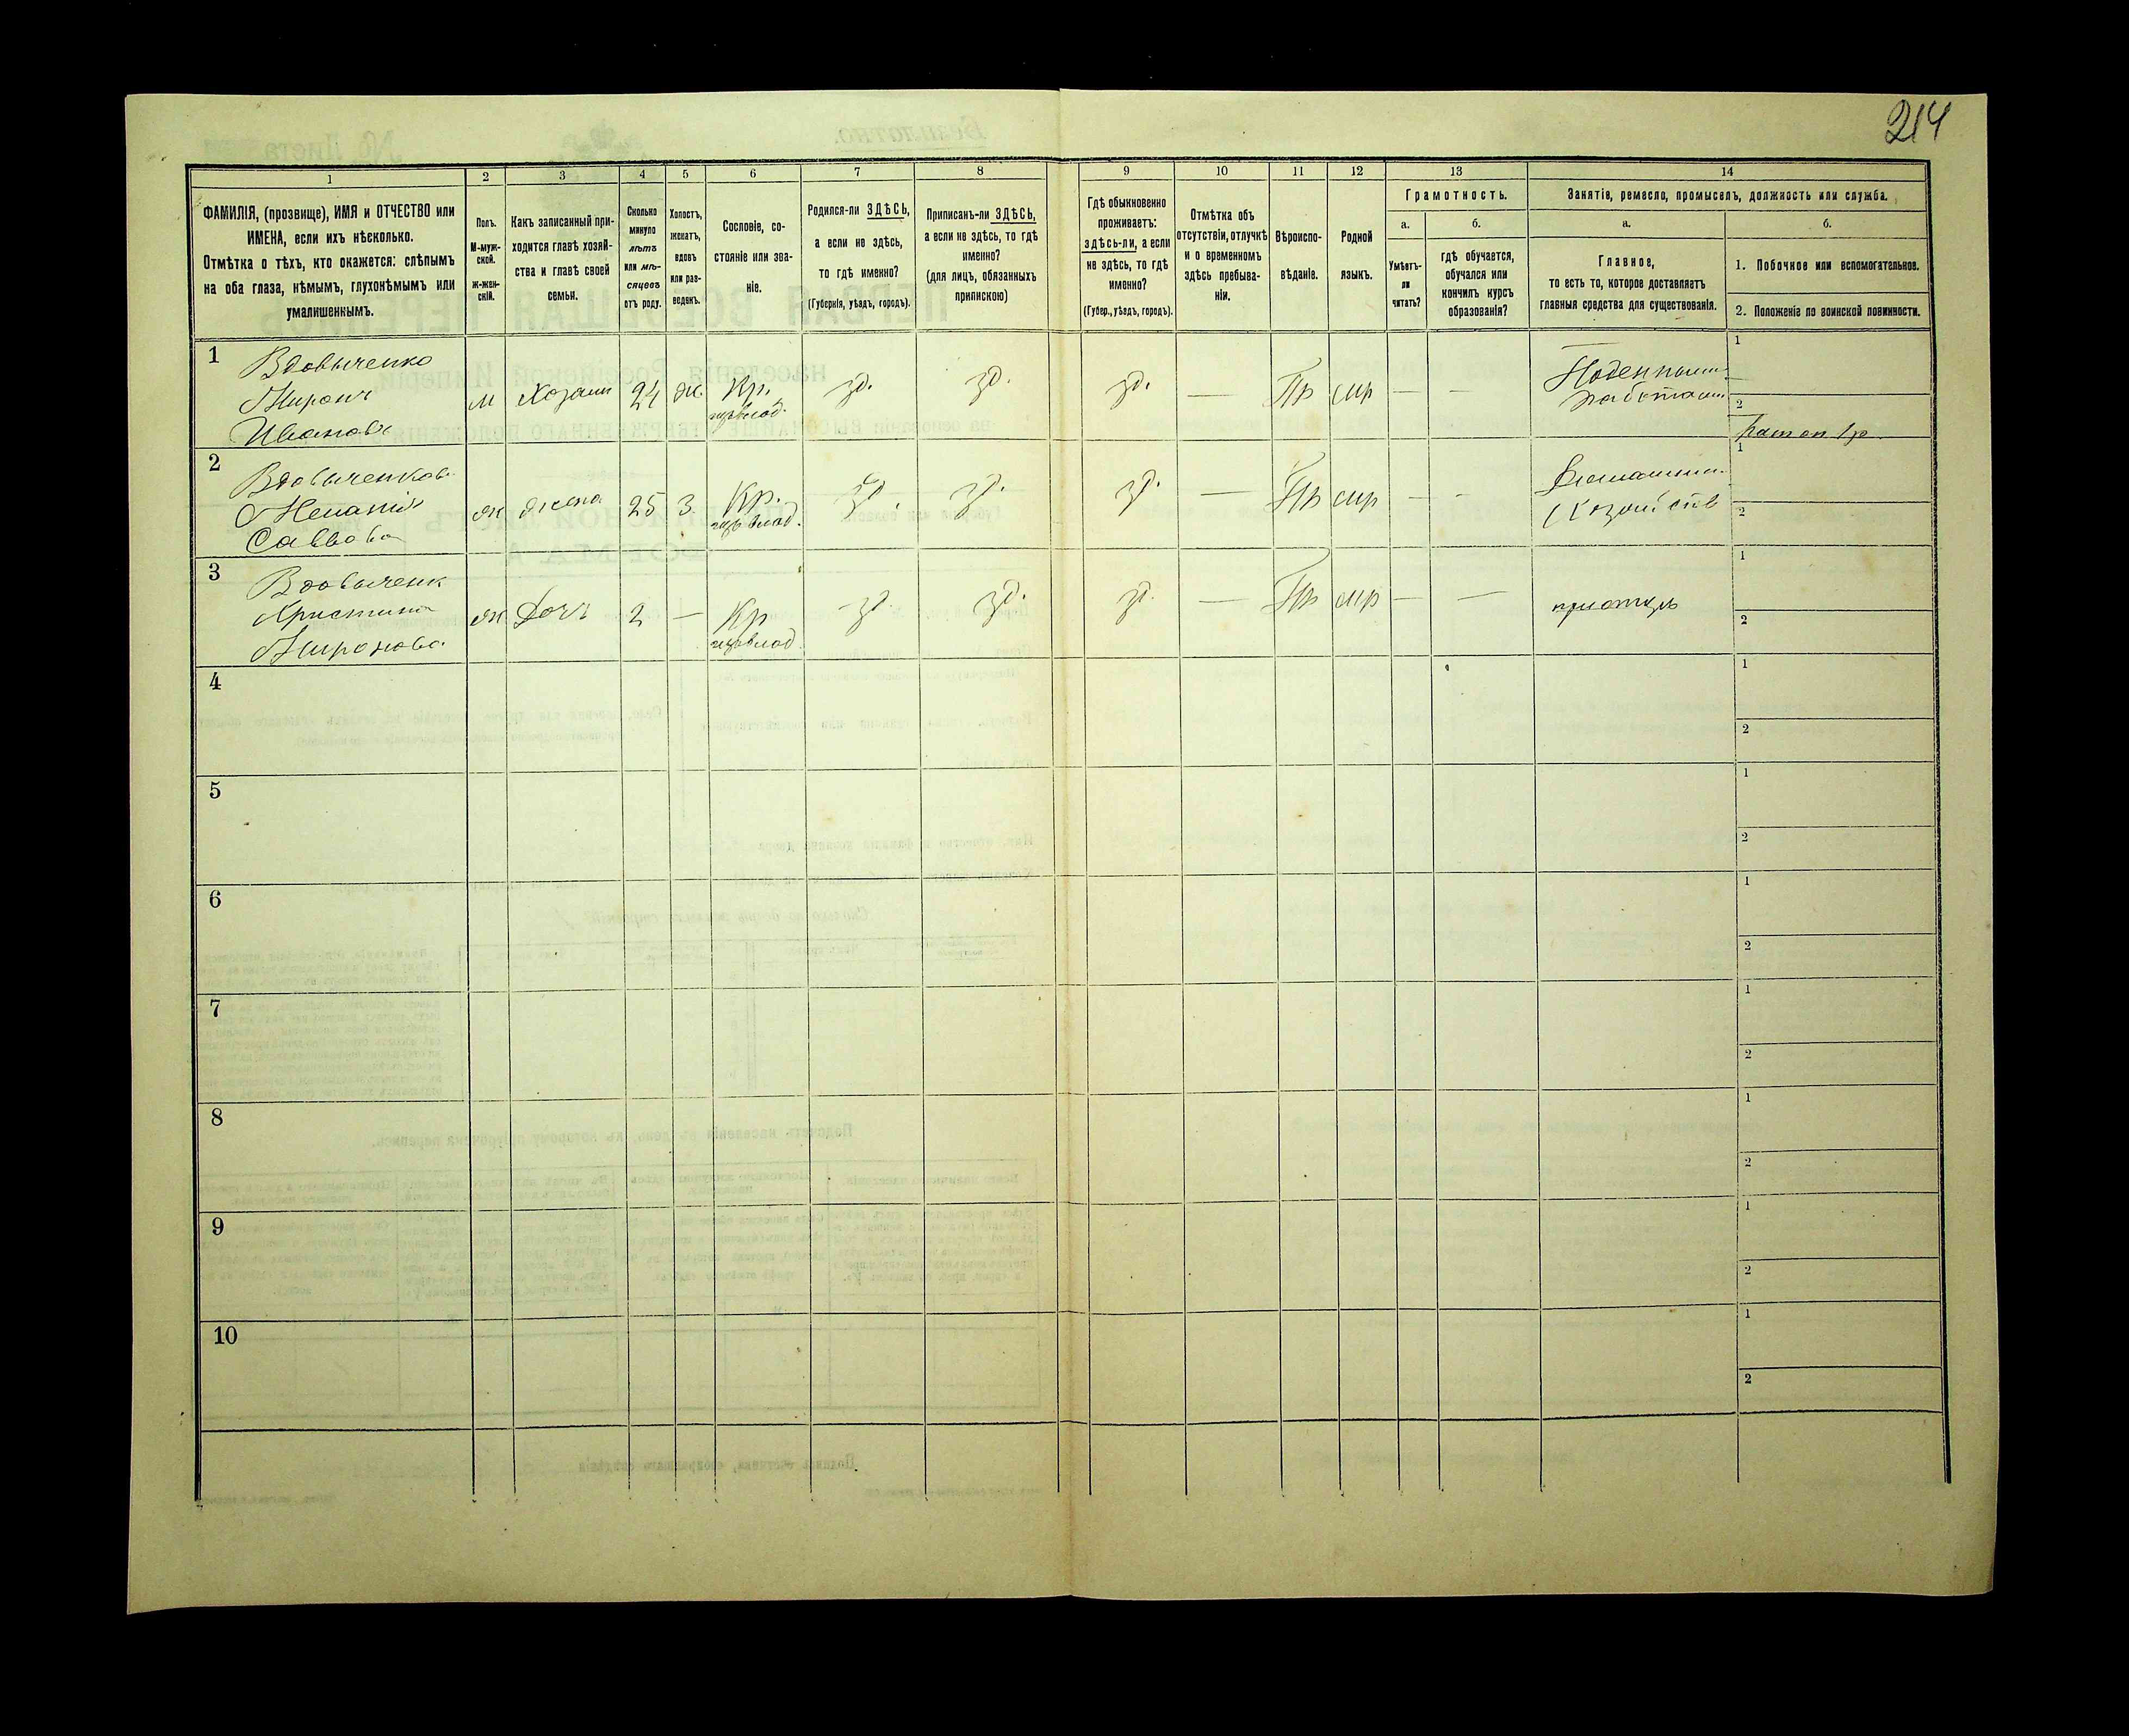 214
1
2
3
4
5
6
7
8
9
10
11
12
13
14
ФАМИЛІЯ, (прозвище), ИМЯ и ОТЧЕСТВО или
ИМЕНА, если ихъ нѣсколько.
Отмѣтка о тѣхъ, кто окажется: слѣпымъ
на оба глаза, нѣмымъ, глухонѣмымъ или
умалишеннымъ.
Полъ.
М-муж-
ской.
ж-жен-
скій.
Какъ записанный при-
ходится главѣ хозяй-
ства и главѣ своей
семьи.
Сколько
минуло
лѣтъ
или мѣ-
сяцевъ
отъ роду.
Холостъ,
женатъ,
вдовъ
или раз-
веденъ.
Сословіе, со-
стояніе или зва-
ніе.
Родился-ли ЗДѢСЬ,
а если не здѣсь,
то гдѣ именно?
(Губернія, уѣздъ, городъ).
Приписанъ-ли ЗДѢСЬ,
а если не здѣсь, то гдѣ
именно?
(для лицъ, обязанныхъ
припискою)
Гдѣ обыкновенно
проживаетъ:
здѣсь-ли, а если
не здѣсь, то гдѣ
именно?
(Губер., уѣздъ, городъ).
Отмѣтка объ
отсутствіи, отлучкѣ
и о временномъ
здѣсь пребыва-
ніи.
Вѣроиспо-
вѣданіе.
Родной
языкъ.
Грамотность.
а.
Умѣетъ-
ли
читать?
б.
гдѣ обучается,
обучался или
кончилъ курсъ
образованія?
Занятіе, ремесло, промыселъ, должность или служба.
а.
Главное,
то есть то, которое доставляетъ
главныя средства для существованія.
б.
1. Побочное или вспомогательное.
2. Положеніе по воинской повинности.
1
Вдовыченко
Миронъ
Ивановъ
м
Хозяин
24
ж.
Кр.
зд.
зд.
зд.
—
Пр
мр
—
—
1
2
2
Вдовыченкова
Саввова
ж
жена
25
З.
Кр.
зд.
зд.
зд.
—
Пр
мр
—
—
1
2
3
Вдовыченк
Христина
Миронова
ж
Дочь
2
—
Кр
зд
зд.
зд.
—
Пр
мр
—
—
при отцѣ
1
2
4
1
2
5
1
2
6
1
2
7
1
2
8
1
2
9
1
2
10
1
2